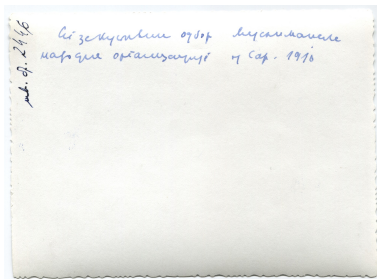 Егзекутивни одбор Муслиманске
народне организације у Сар. 1910
инв. бр.